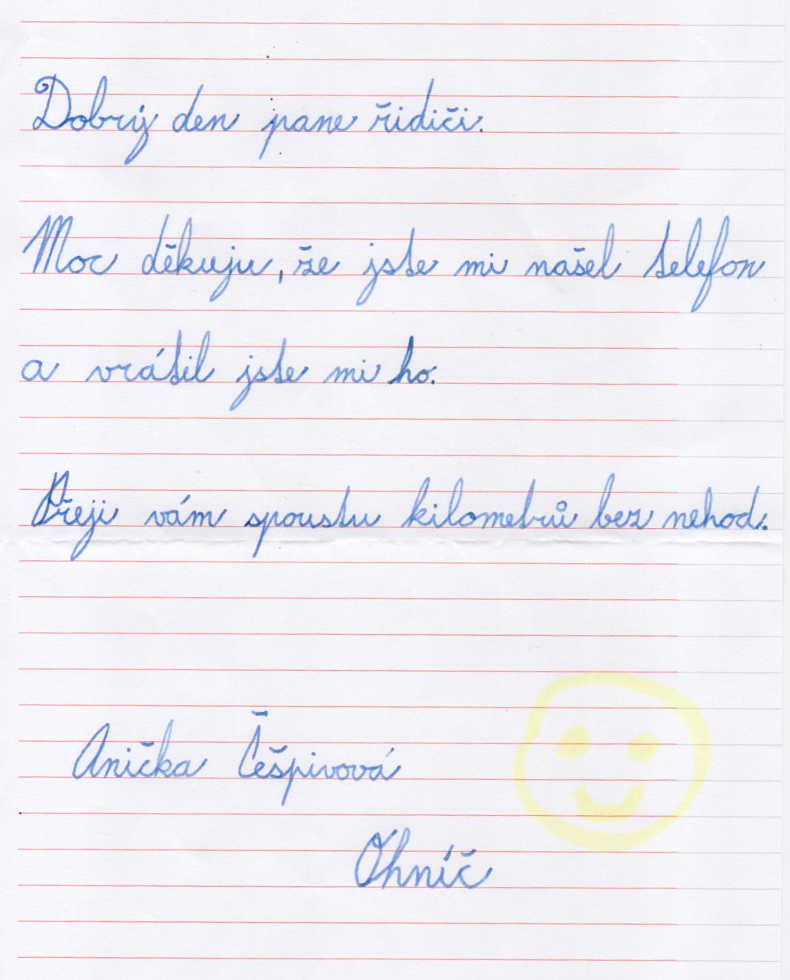 Dobrý den pane řidiči.
Moc děkuju, že jste mi našel telefon
a vrátil jste mi ho.
Přeji vám spoustu kilometrů bez nehod.
Anička Češpivová
Ohníč